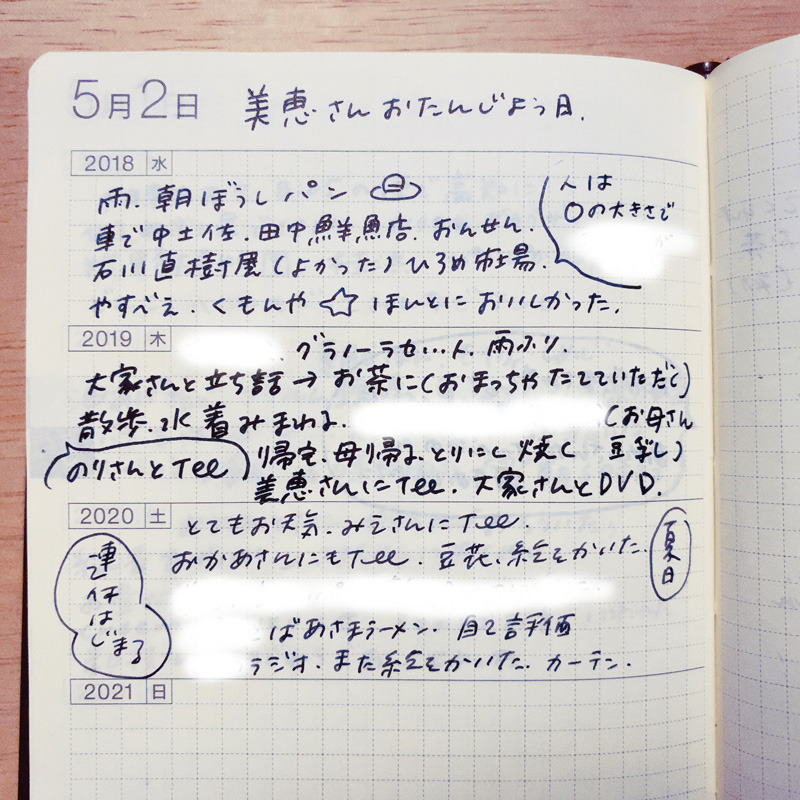 5月2日 美恵さんおたんじょう日.
2018 水
雨.朝ぼうしパン
車で中土佐.田中鮮魚店.おんせん.
石川直樹展(よかった)ひろめ市場.
やすべえ.くもんや☆ほんとにおいしかった.
人は
○の大きさで
が
2019 木
グラノーラせい人.雨ふり.
大家さんと立ち話→お茶に(おまっちゃたてていただく)
散歩.水着みまわる.(お母さん
のりさんとTee
帰宅.母帰る.とりにく焼く 豆乳し)
美恵さんにTee.大家さんとDVD.
2020 土
とてもお天気.みえさんにTee.
おかあさんにもTee.豆花.絵をかいた.
夏日
連休はじまる
ばあさまラーメン.自己評価
ラジオ.また絵をかいた.カーテン.
2021 日